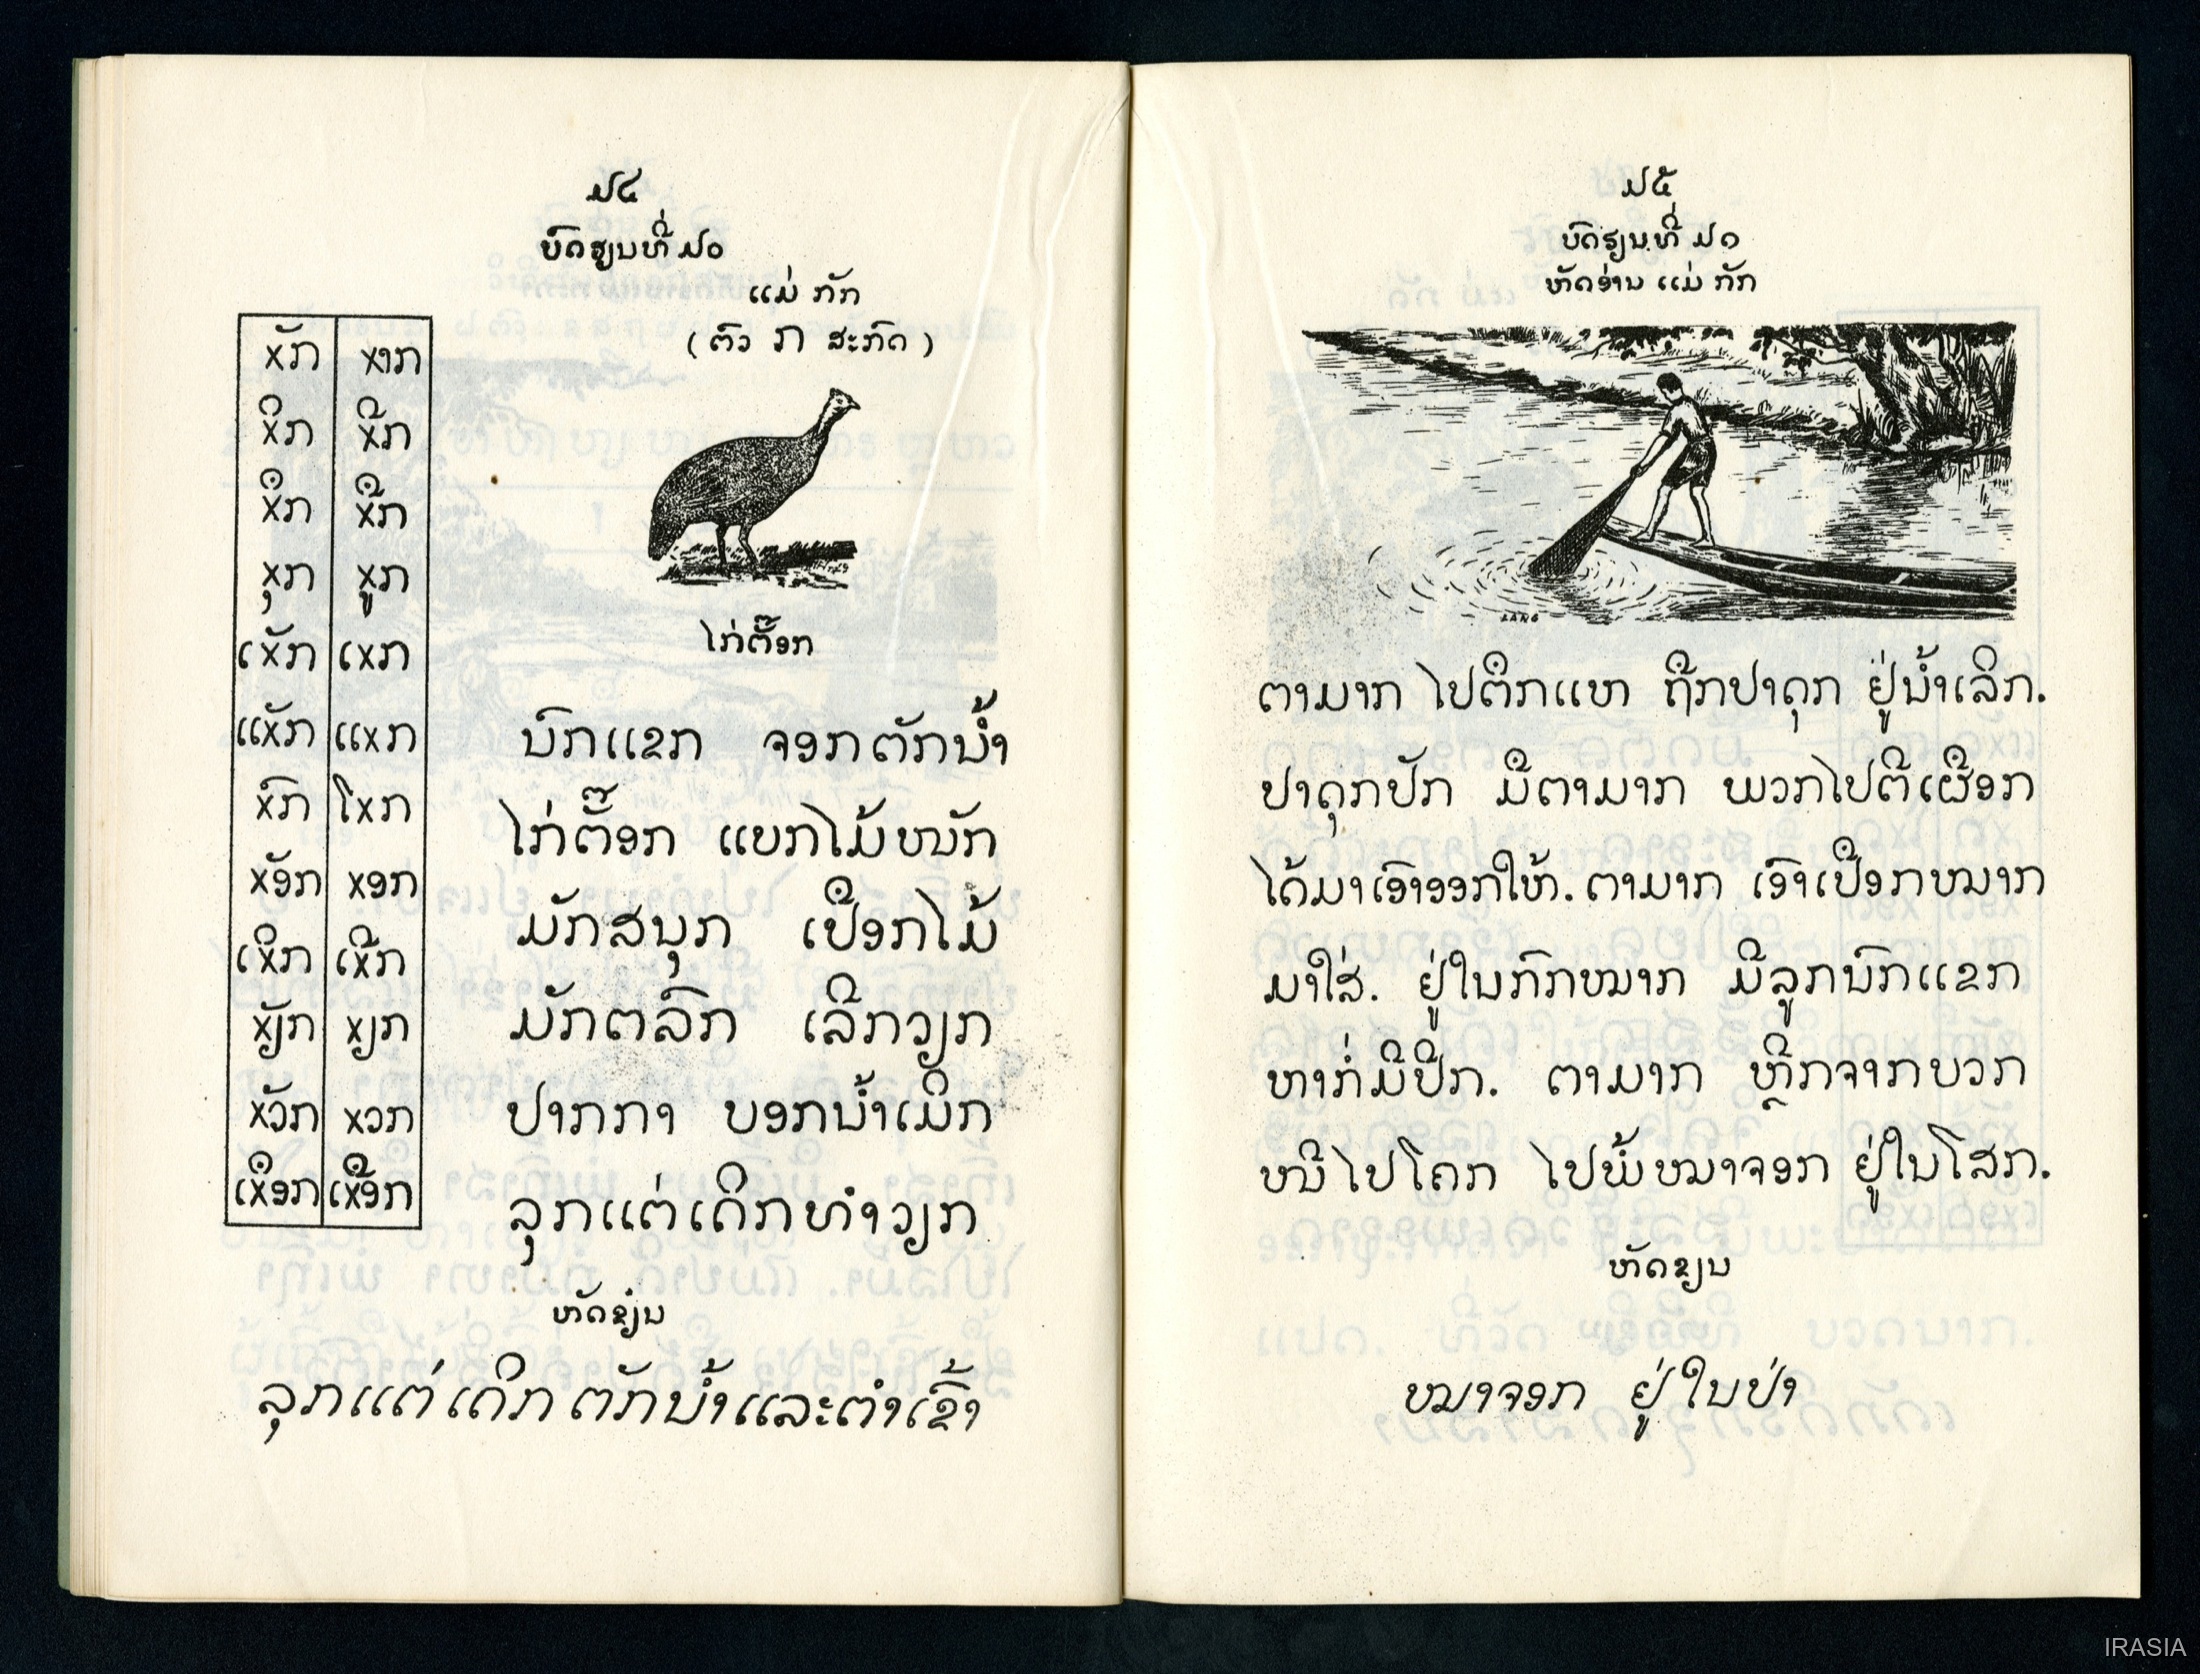 ໓໔
ບົດຮຽນທີ່ ໓໐
ແມ່ ກັກ
( ຕົວ ກ ສະກົດ )
xັກ xາກ
xິກ xີກ
xຶກ xືກ
xຸກ xູກ
ເxັກ ເxກ
ແxັກ ແxກ
xົກ ໂxກ
xັອກ xອກ
ເxິກ ເxີກ
xັຽກ xຽກ
xັວກ xວກ
ເxຶອກ ເxືອກ
ໄກ່ຕ໊ອກ
ນົກແຂກ ຈອກຕັກນ້ຳ
ໄກ່ຕ໊ອກ ແບກໄມ້ໜັກ
ມັກສນຸກ ເປືອກໄມ້
ມັກຕລົກ ເລີກວຽກ
ປາກກາ ບອກນ້ຳເມິກ
ລຸກແຕ່ເດິກທຳວຽກ
ຫັດຂຽນ
ລຸກແຕ່ເດິກ ຕັກນ້ຳແລະຕຳເຂົ້າ
໓໕
ບົດຮຽນທີ່ ໓໑
ຫັດອ່ານ ແມ່ ກັກ
LANG
ຕາມາກ ໄປຕຶກແຫ ຖືກປາດຸກ ຢູ່ນ້ຳເລິກ.
ປາດຸກປັກ ມືຕາມາກ ພວກໄປຕີເຜືອກ
ໄດ້ມາເອົາອອກໃຫ້. ຕາມາກ ເອົາເປືອກໝາກ
ມາໃສ່. ຢູ່ໃນກົກໝາກ ມີລູກນົກແຂກ
ຫາກໍ່ມີປີກ. ຕາມາກ ຫຼີກຈາກບວກ
ໜີໄປໂຄກ ໄປພໍ້ໝາຈອກ ຢູ່ໃນໂສກ.
ຫັດຂຽນ
ໝາຈອກ ຢູ່ໃນປ່າ
IRASIA